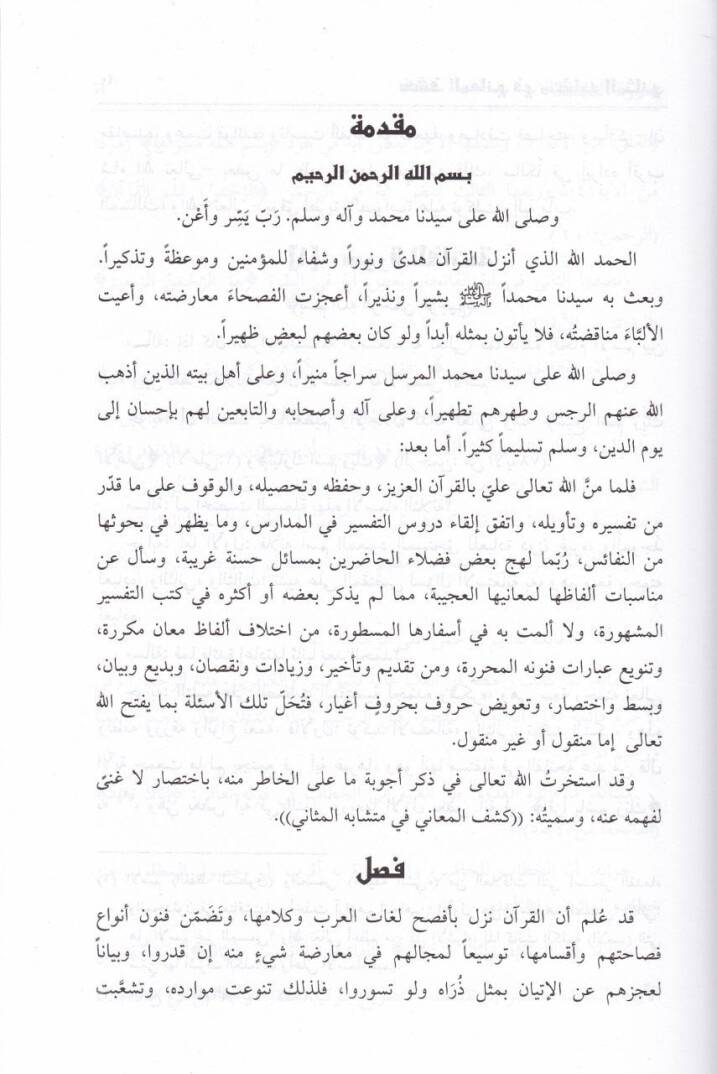 مقدمة
بسم الله الرحمن الرحيم
وصلى الله على سيدنا محمد وآله وسلم. رَبّ يَسِّر وأَعْن.
الحمد الله الذي أنزل القرآن هدىً ونوراً وشفاء للمؤمنين وموعظةً وتذكيراً.
وبعث به سيدنا محمداً ﷺ بشيراً ونذيراً، أعجزت الفصحاءَ معارضته، وأعيت
الألبَّاءَ مناقضتُه، فلا يأتون بمثله أبداً ولو كان بعضهم لبعضٍ ظهيراً.
وصلى الله على سيدنا محمد المرسل سراجاً منيراً، وعلى أهل بيته الذين أذهب
الله عنهم الرجس وطهرهم تطهيراً، وعلى آله وأصحابه والتابعين لهم بإحسان إلى
يوم الدين، وسلم تسليماً كثيراً. أما بعد:
فلما منَّ الله تعالى عليَ بالقرآن العزيز، وحفظه وتحصيله، والوقوف على ما قدّر
من تفسيره وتأويله، واتفق إلقاء دروس التفسير في المدارس، وما يظهر في بحوثها
من النفائس، رُبّما لهج بعض فضلاء الحاضرين بمسائل حسنة غريبة، وسأل عن
مناسبات ألفاظها لمعانيها العجيبة، مما لم يذكر بعضه أو أكثره في كتب التفسير
المشهورة، ولا ألمت به في أسفارها المسطورة، من اختلاف ألفاظ معان مكررة،
وتنويع عبارات فنونه المحررة، ومن تقديم وتأخير، وزيادات ونقصان، وبديع وبيان،
وبسط واختصار، وتعويض حروف بحروفٍ أغيار، فتُحَلّ تلك الأسئلة بما يفتح الله
تعالى إما منقول أو غير منقول.
وقد استخرتُ الله تعالى في ذكر أجوبة ما على الخاطر منه، باختصار لا غنىً
لفهمه عنه، وسميتُه: ((كشف المعاني في متشابه المثاني)).
فصل
قد عُلم أن القرآن نزل بأفصح لغات العرب وكلامها، وتَضَمّن فنون أنواع
فصاحتهم وأقسامها، توسيعاً لمجالهم في معارضة شيءٍ منه إن قدروا، وبياناً
لعجزهم عن الإتيان بمثل ذُرَاه ولو تسوروا، فلذلك تنوعت موارده، وتشعَّبت